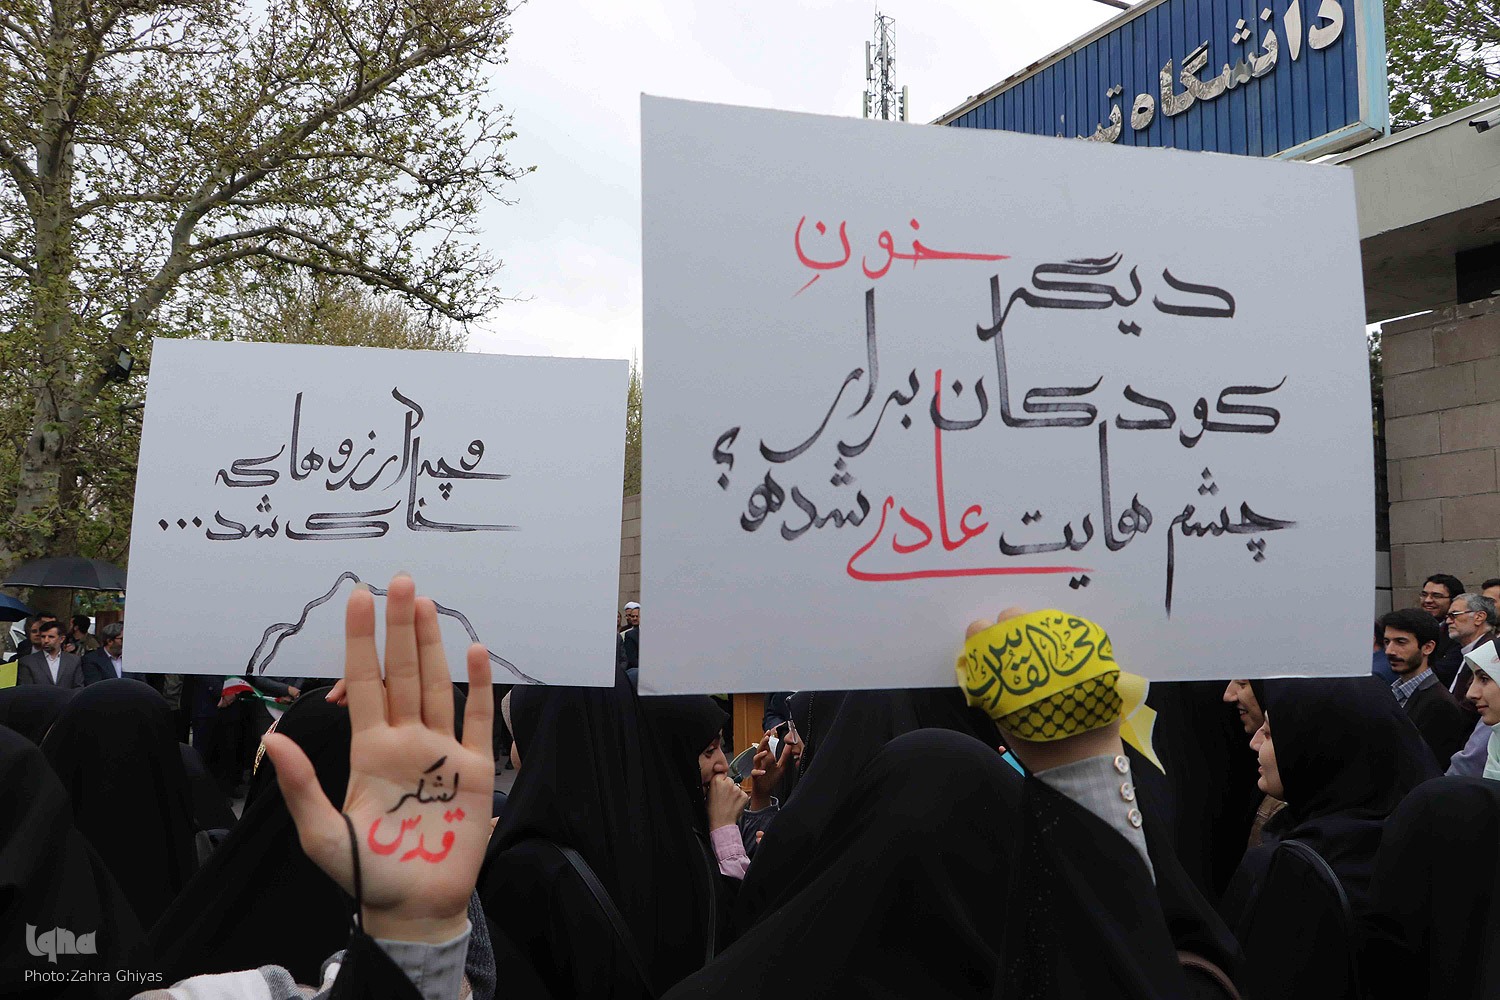 دانشگاه
دیگر خونِ
کودکان برای
چشم هایت عادی شده؟
و چه آرزوها که
خاک شد...
لشکر
قدس
القدس
Iqna
Photo:Zahra Ghiyas